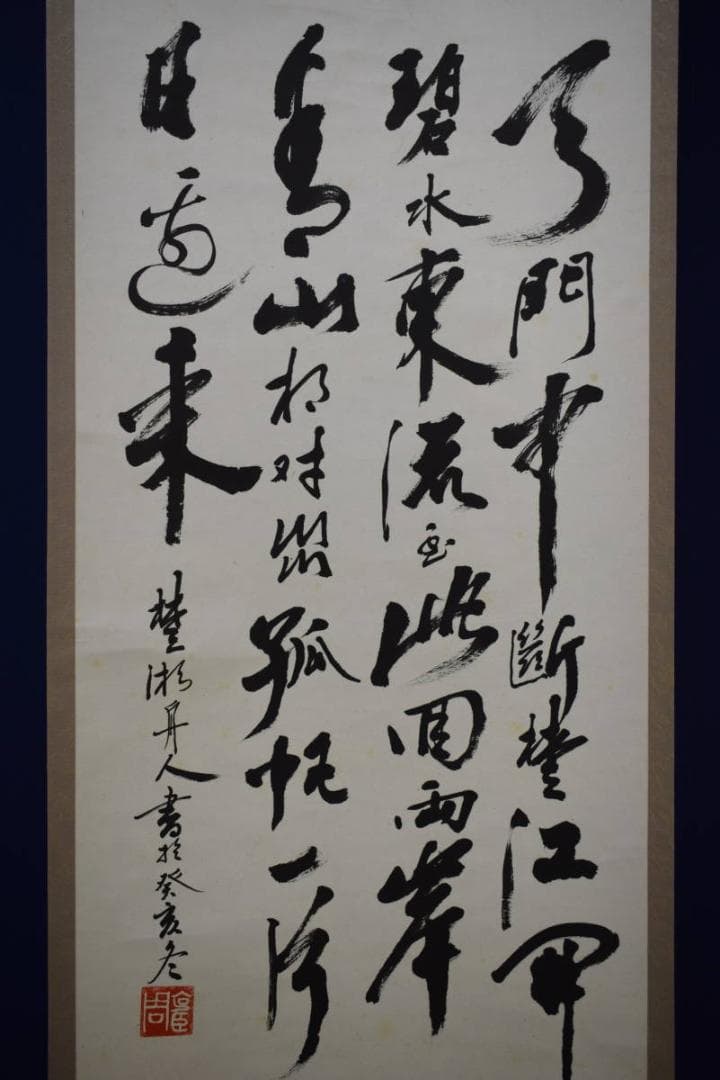 天門中斷楚江開
碧水東流至此回兩岸
青山相對出孤帆一片
日邊來
楚湘丹人書於癸亥冬
周